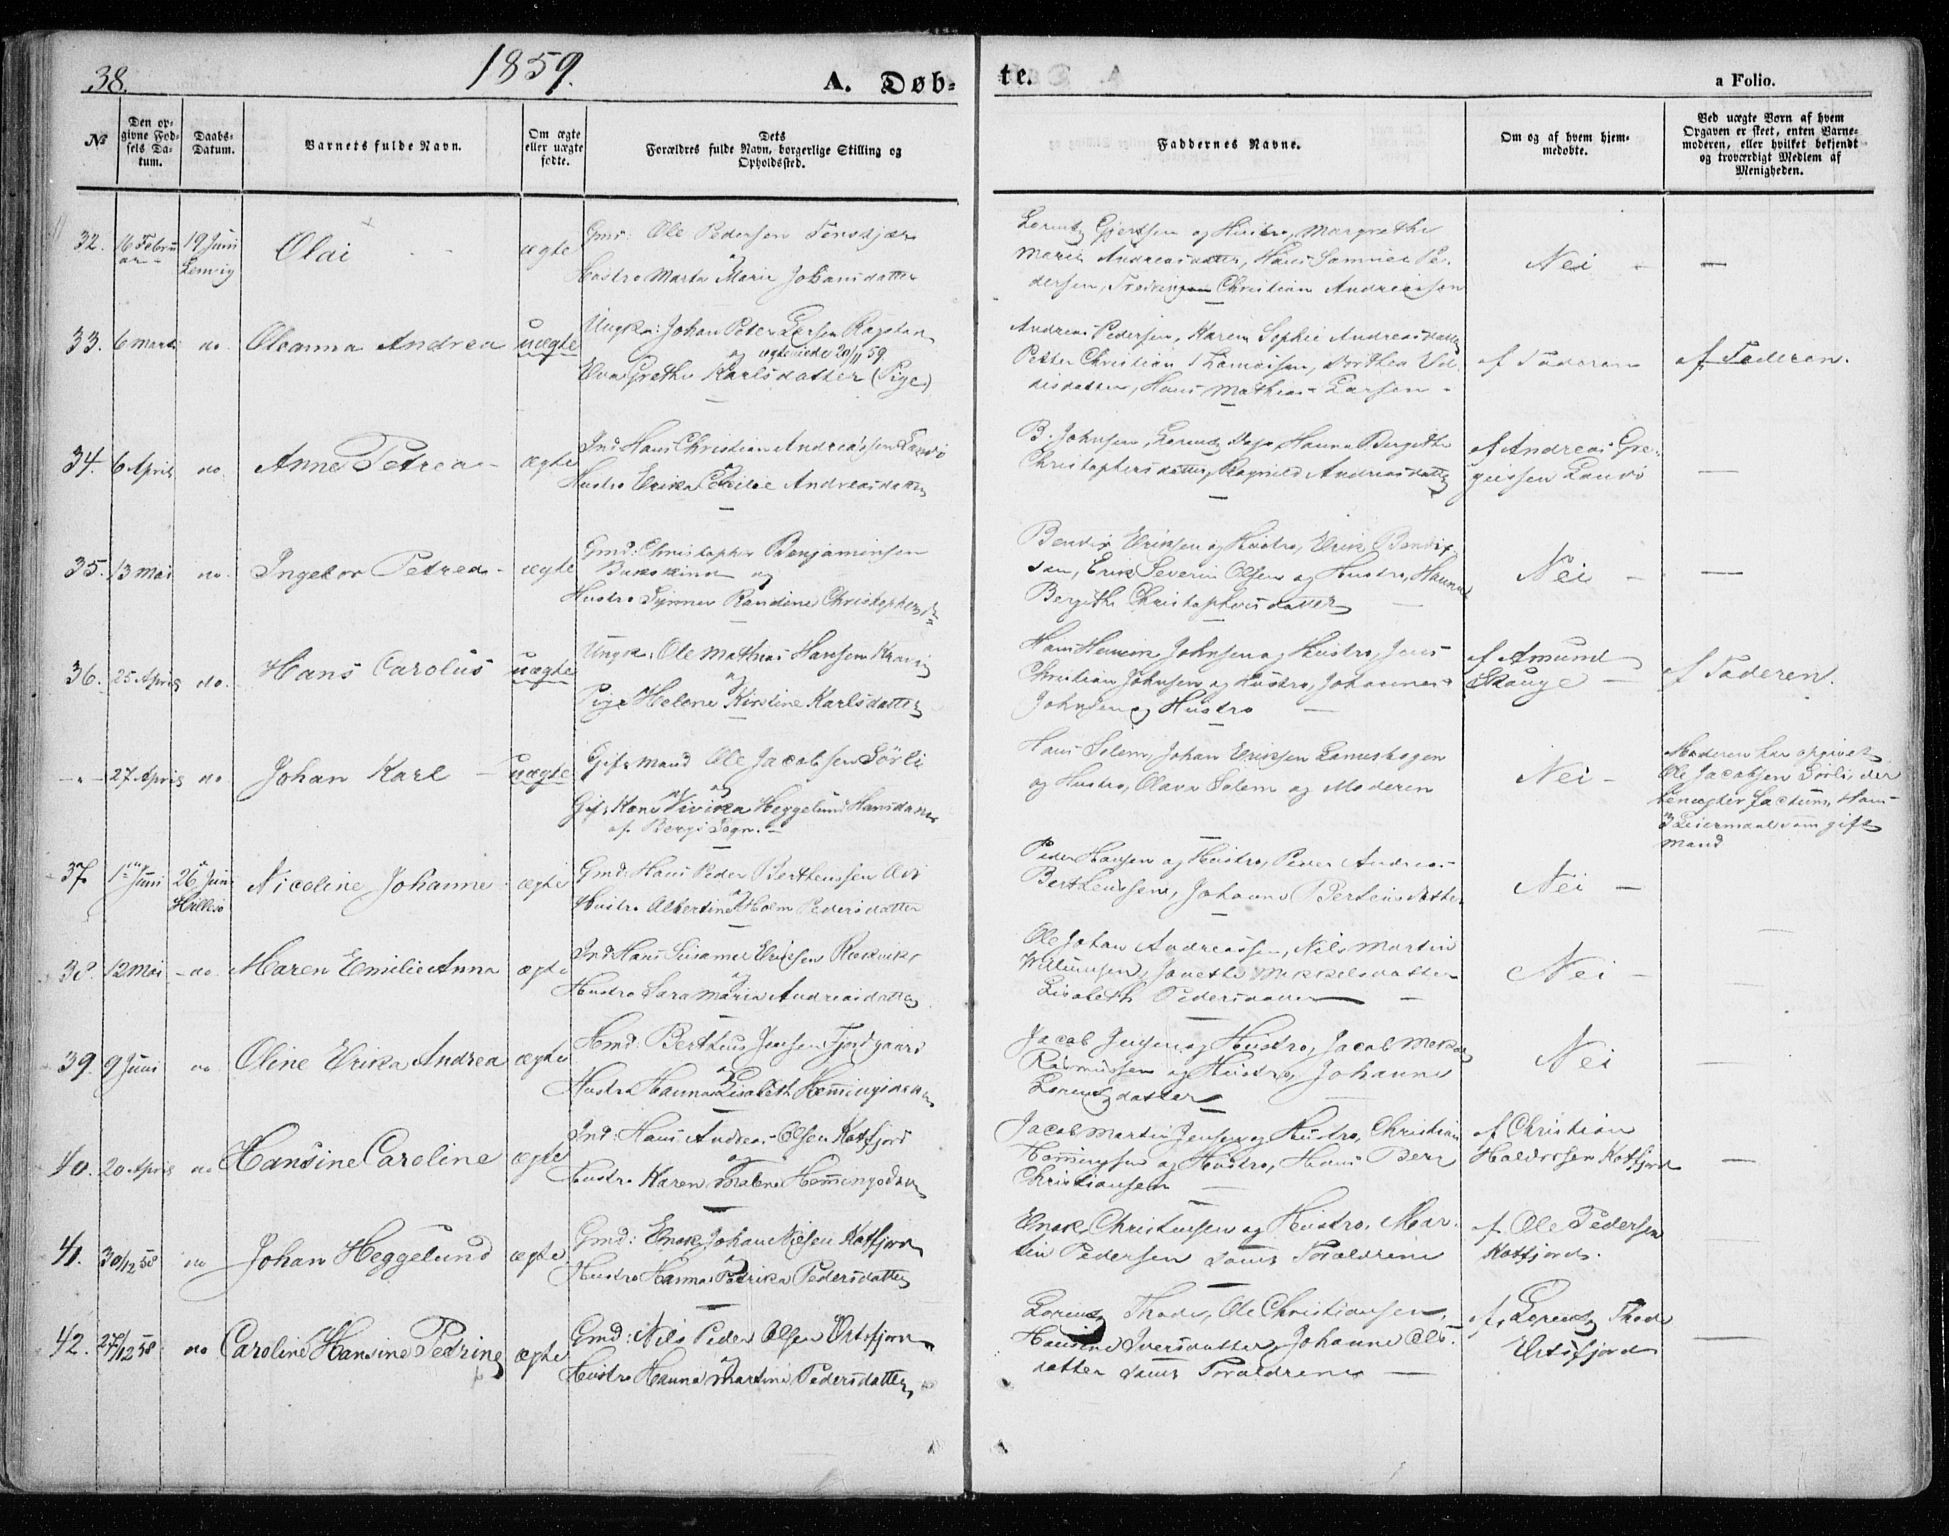 38.
1859.
A. Døb-
te.
a Folio.
№
Den op-
givne Fød-
sels Da-
tum.
Daabs-
Datum.
Barnets fulde Navn.
Om ægte
eller uægte
fødte.
Dets
Forældres fulde Navn, borgerlige Stilling og
Opholdssted.
Faddernes Navne.
Om og af hvem hjem-
medøbte.
Ved uægte Børn af hvem
Opgaven er skeet, enten Barne-
moderen, eller hvilket bekjendt
og troværdigt Medlem af
Menigheden.
32. 16 Febru
ar
19 Juni
Lenvig
Olai
ægte
Gmd: Ole Pedersen
og
Hustro Marta Marie Johansdatter
Lorentz Gjertsen og Hustro, Margrethe
Marie Andreasdatter, Hans Samuel Pe-
dersen, Christian Andreassen
Nei —
33. 6 Marts do. Oleanna Andrea uægte
Ungk: Johan Peter Larsen
og ægteviede 20/11 59.
Eva Grethe Karlsdatter (Pige)
Andreas Pedersen, Karen Sophie Andreasdatter
Peter Christian Thomassen, Dorthea
Hans Mathias Larsen
af Faderen
af Faderen.
34. 6 April do. Anne Petrea ægte
Ind: Hans Christian Andreassen Landø
og
Hustro Erika Andreasdatter
B. Johnsen, Lorentz Hanna Bergithe
Christophersdatter, Ragnild Andreasdatter
af Andreas Gre-
gussen Landø
35. 13 Mai do. Ingebor Petrea ægte
Gmd: Christopher Benjaminsen
Bukskind og
Hustro Randine Christophersdr
Bendix Eriksen og Hustro, Erik Bendix-
sen, Erik Severin Olsen og Hustro, Hanna
Bergithe Christophersdatter
Nei —
36. 25 April do. Hans Carolus uægte
Ungk: Ole Mathias Hansen
og
Pige Helene Kirstine Karlsdatter
Hans Johnsen og Hustro, Jens
Christian Johnsen og Hustro, Johannes
Johnsen og Hustro
af Amund
Skauge
af Faderen.
27 April do. Johan Karl uægte
Gift Mand Ole Jacobsen Sørli
og
Gift Kone Vivika Heggelund Hansdatter
af Bergs Sogn.
Hans Solem, Johan Eriksen
og Hustro, Olava Solem og Moderen
Nei
Moderen har opgivet
Ole Jacobsen Sørli, der
benægter Factum, Hans
3 Leiermaal som gift
Mand
37. 1 Juni
26 Juni
Hillesø
Nicoline Johanne ægte
Gmd: Hans Peder Bertheussen
og
Hustro Albertine Holm Pedersdatter
Peder Hansen og Hustro, Peder Andreas
Bertheussen, Johanna Bertheusdatter
Nei —
38. 12 Mai do. Maren Emilie Anna ægte
Ind: Hans
og
Hustro Sara Maria Andreasdatter
Ole Johan Andreassen, Nils Martin
Willumsen, Mikkelsdatter
Elisabeth Pedersdatter
Nei —
39. 9 Juni do Oline Erika Andrea ægte
Hmd: Bertheus Jensen Fjordgaard
og
Hustro Hanna Elisabeth Hemmingsdatter
Jacob Jensen og Hustro, Jacob
Rasmussen og Hustro, Johanna
Lorentzdatter
Nei
40. 20 April do Hansine Caroline ægte
Ind: Hans Andreas Olsen Katfjord
og
Hustro Karen Hemmingsdatter
Jacob Martin Jensen og Hustro, Christian
Hemmingsen og Hustro, Hans
Christiansen
af Christian
Haldorsen Katfjord
41. 30/12 58 do Johan Heggelund ægte
Gmd: Enok Johan Nilsen Katfjord
og
Hustro Hanna Pedrika Pedersdatter
Enok Christensen og Hustro, Mar-
tin Pedersen samt Forældrene
af Ole Pedersen
Katfjord.
42. 27/12 58 do Caroline Hansine Pedrine ægte
Gmd: Nils Peder Olsen Ertsfjord
og
Hustro Hanna Martine Pedersdatter
Lorentz Thode, Ole Christiansen,
Hansine Iversdatter, Johanne Ols-
datter samt Forældrene
af Lorentz Thode
Ertsfjord